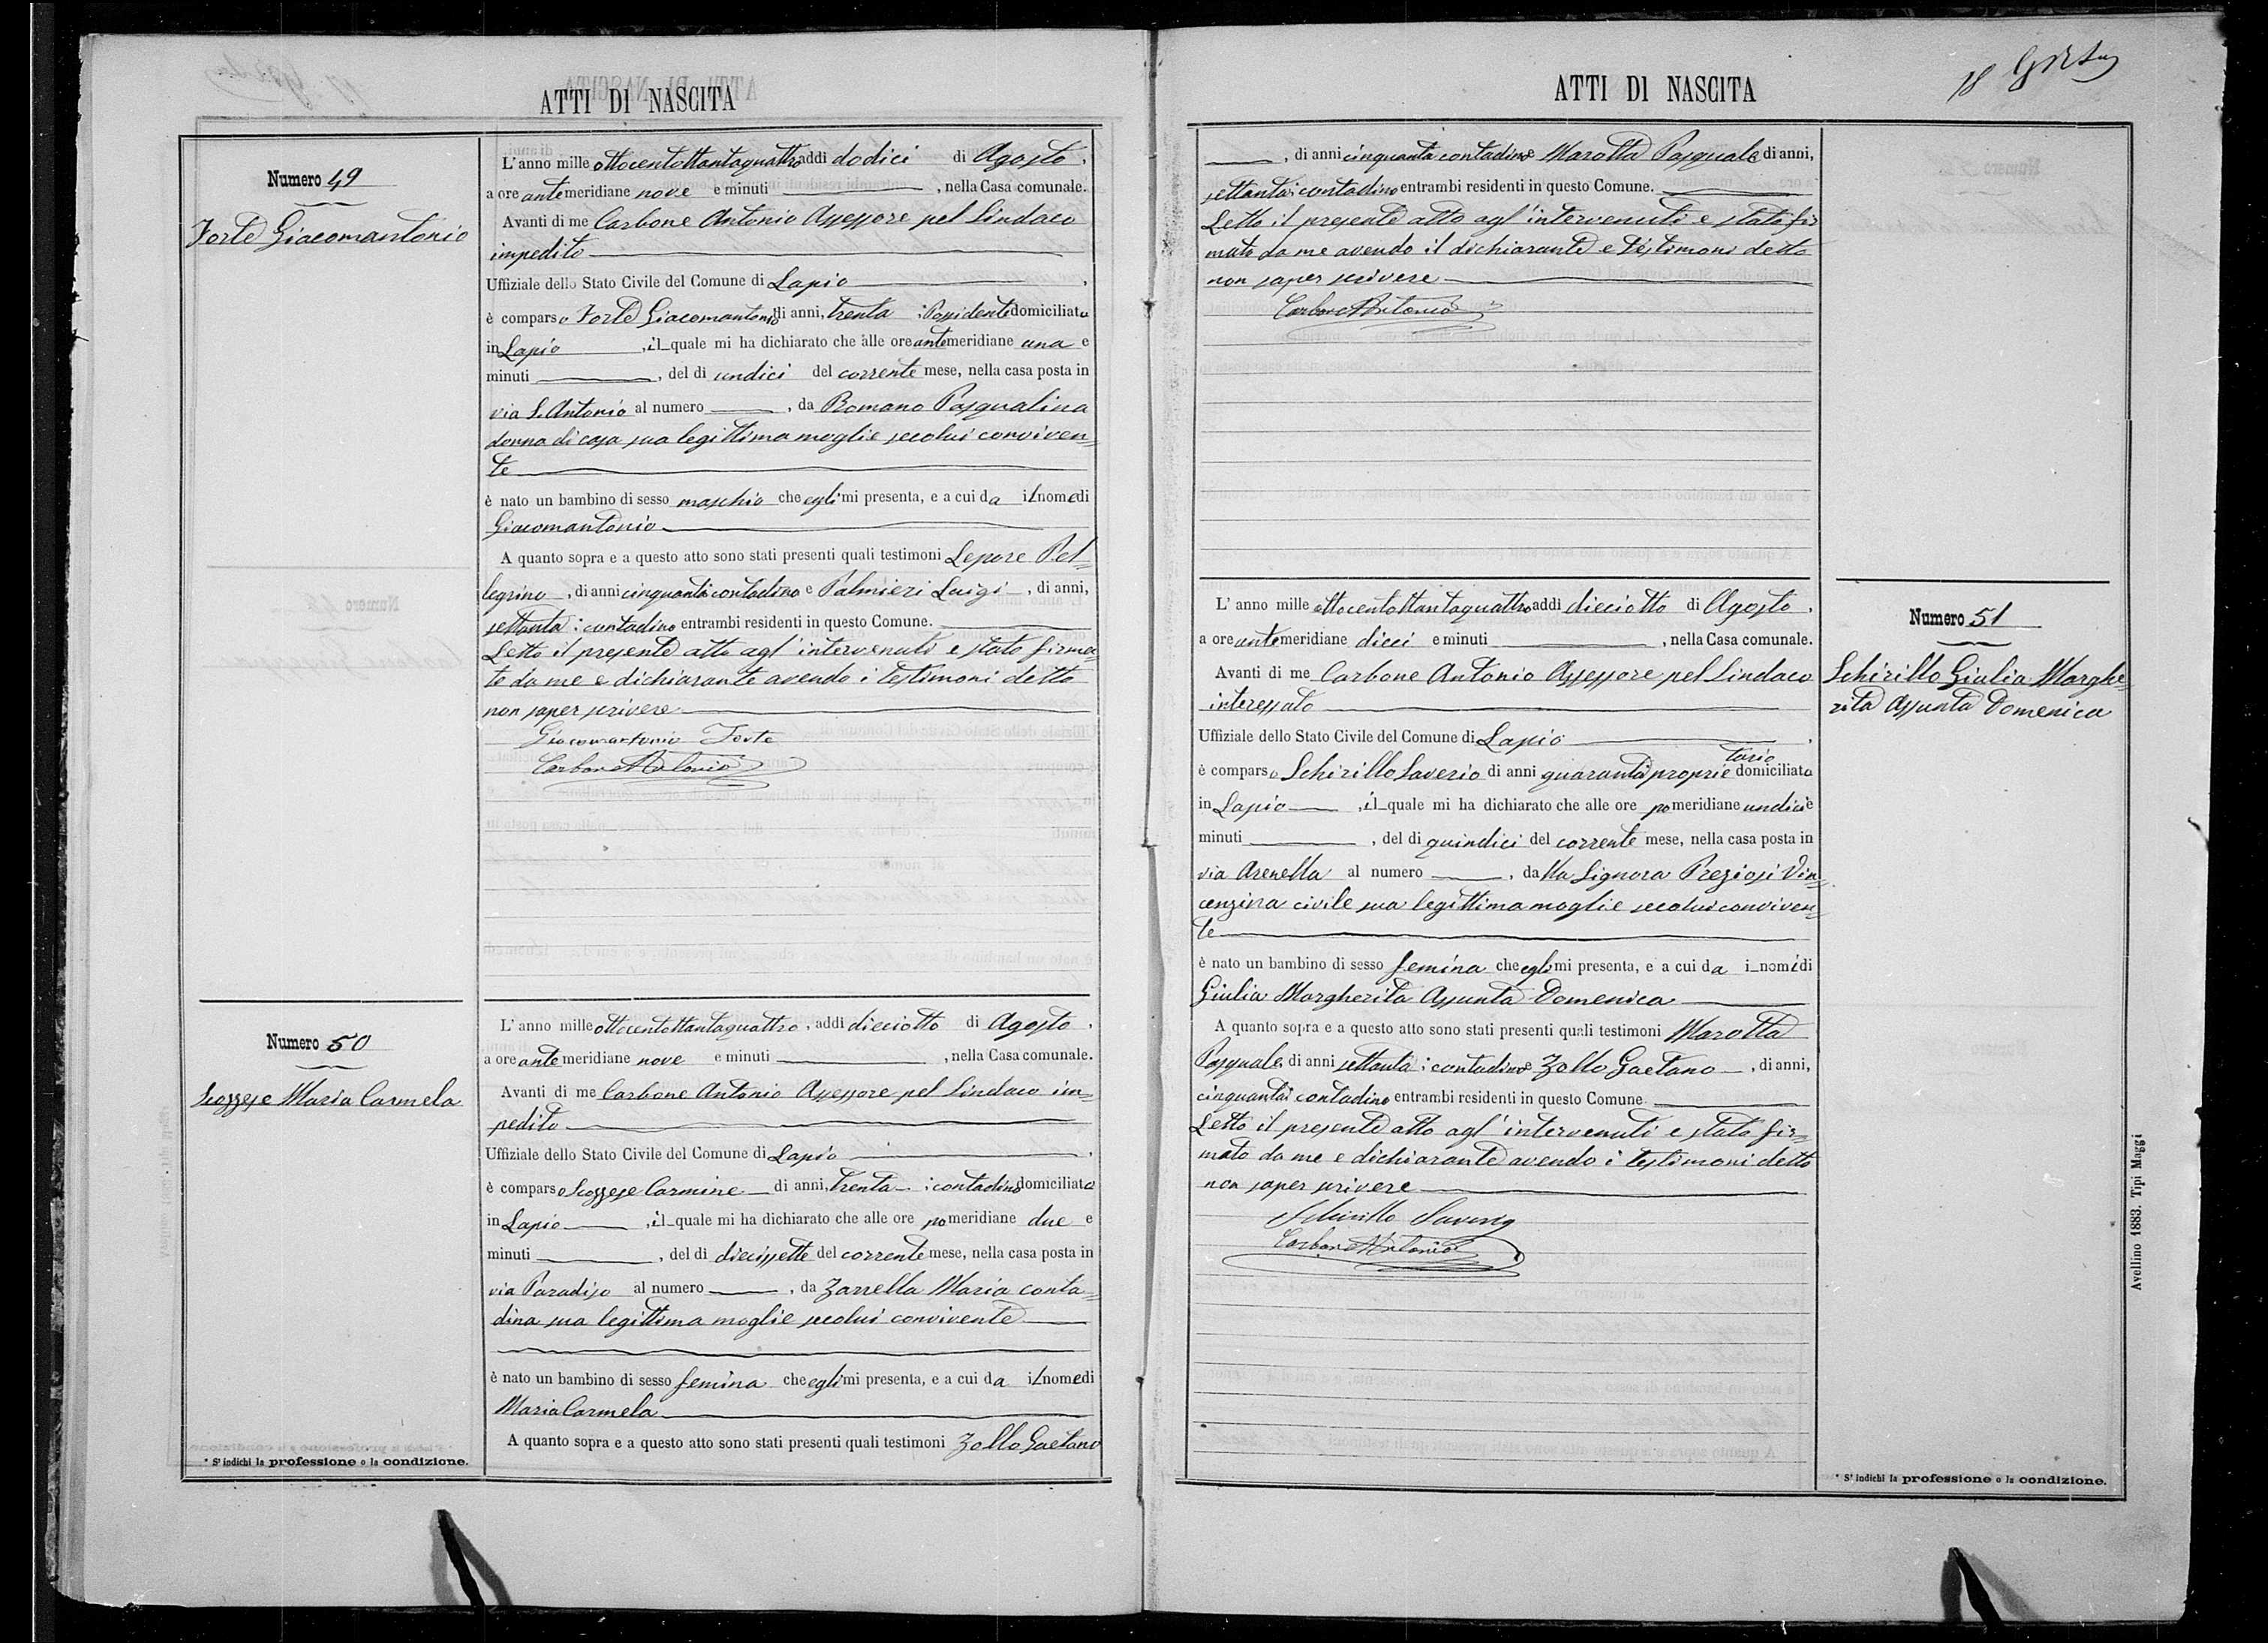 ATTI DI NASCITA
Numero 49
Forte Giacomantonio
L'anno mille ottocentottantaquattro addi dodici di Agosto,
a ore antemeridiane nove e minuti , nella Casa comunale.
Avanti di me Carbone Antonio Assessore pel Sindaco
impedito
Uffiziale dello Stato Civile del Comune di Lapio ,
è comparso Forte Giacomantonio di anni, trenta : Possidente domiciliato
in Lapio , il quale mi ha dichiarato che alle ore antemeridiane una e
minuti , del dì undici del corrente mese, nella casa posta in
via S. Antonio al numero , da Romano Pasqualina
donna di casa sua legittima moglie secolui conviven=
te
è nato un bambino di sesso maschio che egli mi presenta, e a cui da il nome di
Giacomantonio
A quanto sopra e a questo atto sono stati presenti quali testimoni Lepore Pel=
legrino , di anni cinquanta contadino e Palmieri Luigi , di anni,
settanta : contadino entrambi residenti in questo Comune.
Letto il presente atto agl'intervenuti e stato firma=
to da me e dichiarante avendo i testimoni detto
non saper scrivere
Giacomantonio Forte
Carbone Antonio
Numero 50
Scozzese Maria Carmela
L'anno mille ottocentottantaquattro, addi dieciotto di Agosto,
a ore antemeridiane nove e minuti , nella Casa comunale.
Avanti di me Carbone Antonio Assessore pel Sindaco im=
pedito
Uffiziale dello Stato Civile del Comune di Lapio ,
è comparso Scozzese Carmine di anni, trenta : contadino domiciliato
in Lapio , il quale mi ha dichiarato che alle ore pomeridiane due e
minuti , del dì diecissette del corrente mese, nella casa posta in
via Paradiso al numero , da Zarrella Maria conta=
dina sua legittima moglie secolui convivente
è nato un bambino di sesso femina che egli mi presenta, e a cui da il nome di
Maria Carmela
A quanto sopra e a questo atto sono stati presenti quali testimoni Zollo Gaetano
* S'indichi la professione o la condizione.
ATTI DI NASCITA
18
, di anni cinquanta contadino e Marotta Pasquale di anni,
settanta : contadino entrambi residenti in questo Comune.
Letto il presente atto agl'intervenuti e stato fir
mato da me avendo il dichiarante e testimoni detto
non saper scrivere
Carbone Antonio
Numero 51
Schirillo Giulia Marghe=
rita Assunta Domenica
L'anno mille ottocentottantaquattro addi dieciotto di Agosto,
a ore antemeridiane dieci e minuti , nella Casa comunale.
Avanti di me Carbone Antonio Assessore pel Sindaco
interessato
Uffiziale dello Stato Civile del Comune di Lapio ,
è comparso Schirillo Saverio di anni quaranta proprietario domiciliato
in Lapio , il quale mi ha dichiarato che alle ore pomeridiane undici e
minuti , del dì quindici del corrente mese, nella casa posta in
via Arenella al numero , dalla Signora Preziosi Vin=
cenzina civile sua legittima moglie secolui conviven=
te
è nato un bambino di sesso femina che egli mi presenta, e a cui da i nomi di
Giulia Margherita Assunta Domenica
A quanto sopra e a questo atto sono stati presenti quali testimoni Marotta
Pasquale, di anni settanta : contadino e Zollo Gaetano , di anni,
cinquanta : contadino entrambi residenti in questo Comune
Letto il presente atto agl'intervenuti e stato fir=
mato da me e dichiarante avendo i testimoni detto
non saper scrivere
Schirillo Saverio
Carbone Antonio
* S'indichi la professione o la condizione.
Avellino 1883. Tipi Maggi